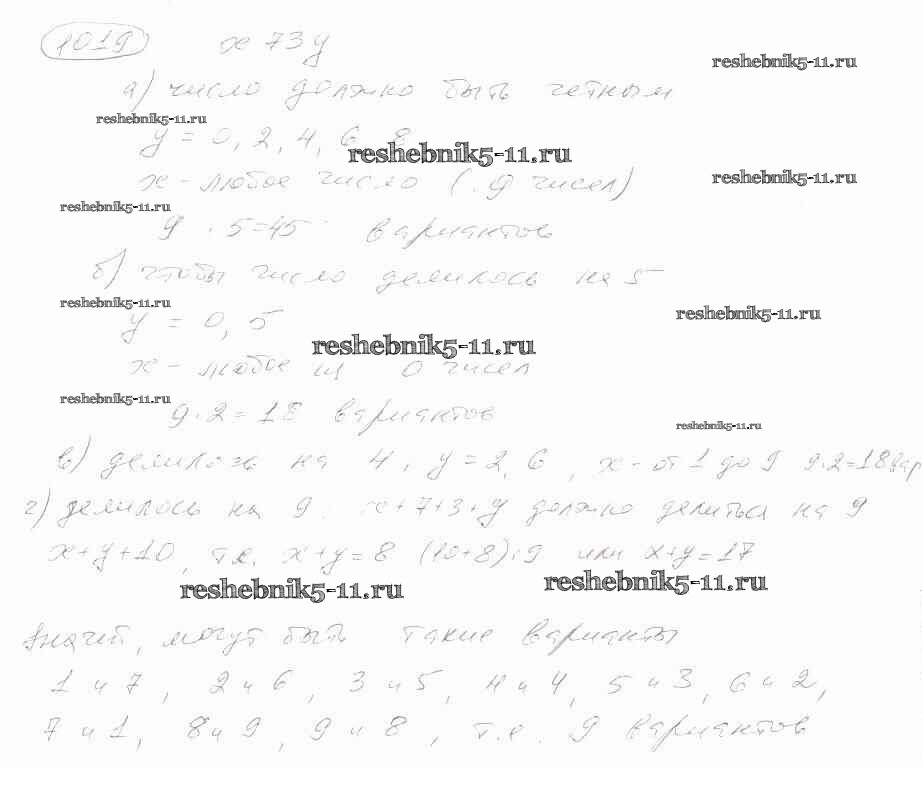 1019 x 73 y
reshebnik5-11.ru
а) число должно быть четным
reshebnik5-11.ru
y = 0, 2, 4, 6, 8
reshebnik5-11.ru
x - любое число ( 9 чисел)
reshebnik5-11.ru
reshebnik5-11.ru
9 · 5 = 45 вариантов
б) чтобы число делилось на 5
reshebnik5-11.ru
y = 0, 5
reshebnik5-11.ru
reshebnik5-11.ru
x - любое чисел
reshebnik5-11.ru
9 · 2 = 18 вариантов
reshebnik5-11.ru
в) делилось на 4, y = 2, 6, x - от 1 до 9 9·2=18 вар
г) делилось на 9. x+7+3+y должно делиться на 9
x+y+10, т.е. x+y=8 (10+8):9 или x+y=17
reshebnik5-11.ru
reshebnik5-11.ru
Значит, могут быть такие варианты
1 и 7, 2 и 6, 3 и 5, 4 и 4, 5 и 3, 6 и 2,
7 и 1, 8 и 9, 9 и 8, т.е. 9 вариантов